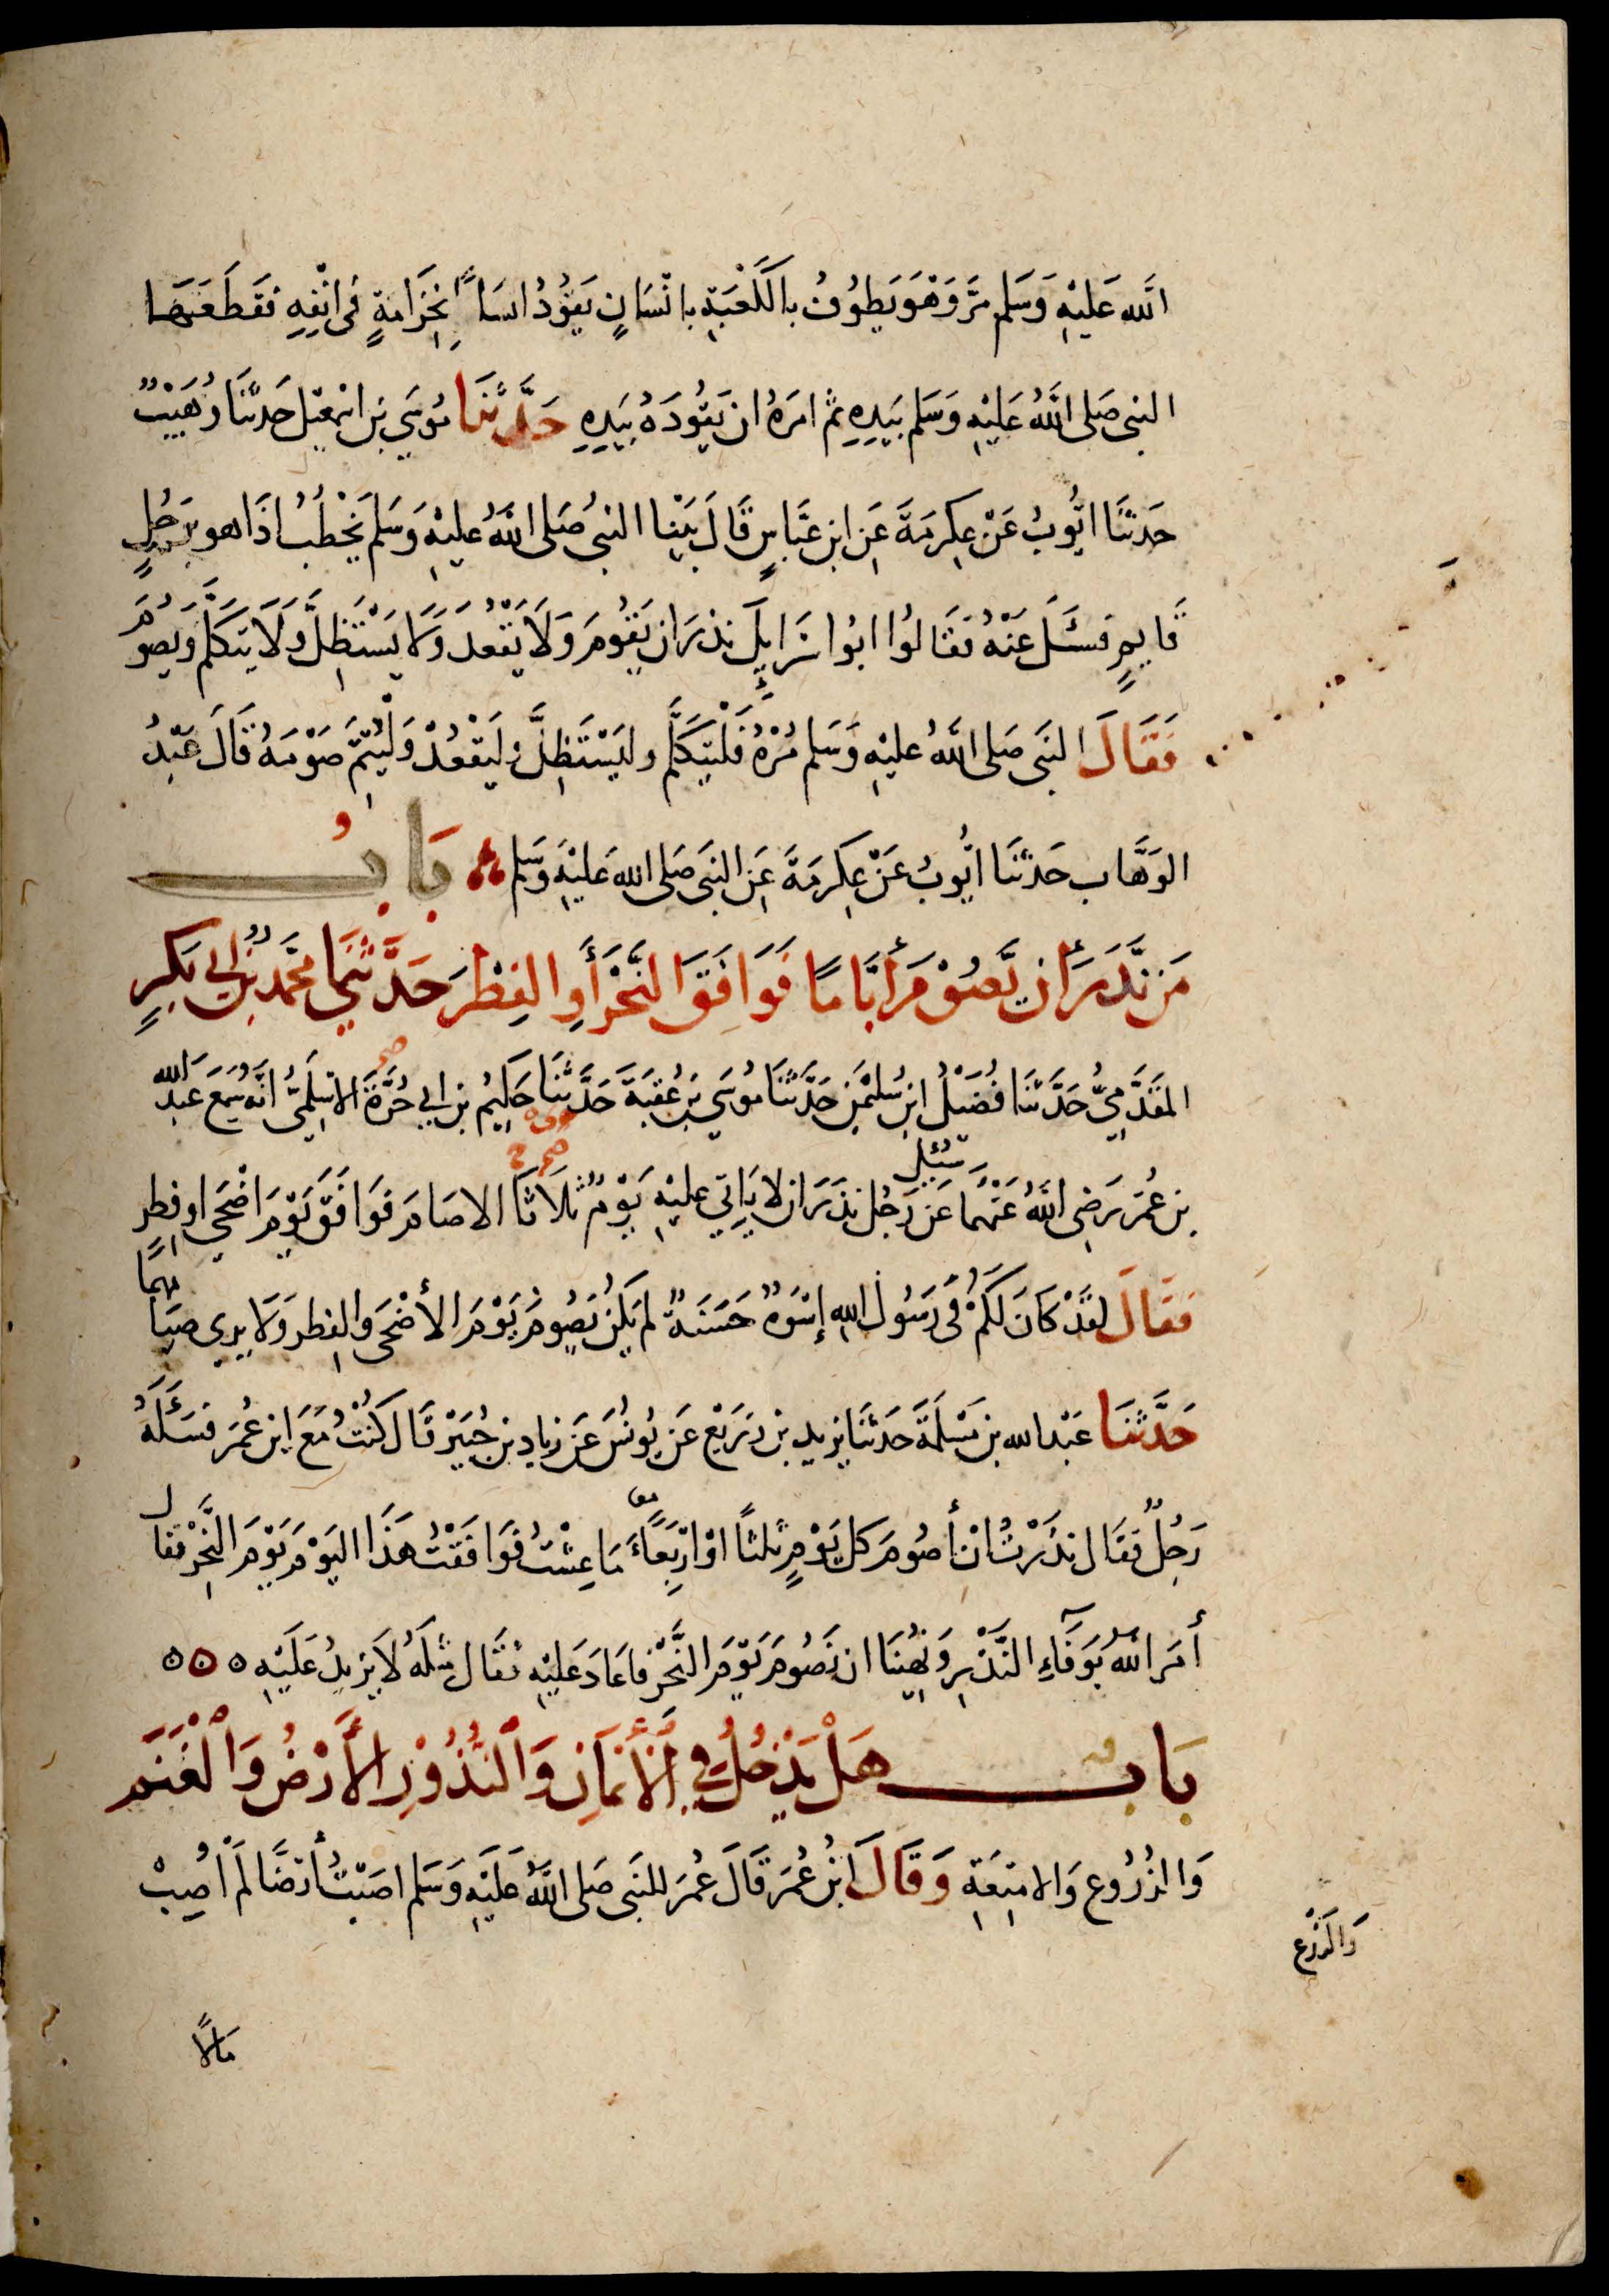 الله عَلَيْهِ وَسَلم مَرَّ وَهْوَ يَطُوفُ بالكَعْبَةِ بانْسَانٍ يَقُودُ انسَاناً بِخِزَامَةٍ فى انْفِهِ فقَطَعَهَا
النبى صَلى اللَّهُ عَلَيْهِ وَسَلم بيَدِهِ ثم امَرَهُ ان يَقُودَهُ بيَدِهِ حَدَّثَنَا مُوسَى بن اسْمعيل حَدثَنَا وُهَيْبٌ
حَدثنَا ايُّوبُ عَنْ عِكرمَةَ عَنِ ابن عَبَّاسٍ قَالَ بَيْنا النبىُ صَلى اللَّهُ عليْهِ وَسَلم يَخْطُبُ اذَا هو برَجُلٍ
قَايمٍ فسَئَلَ عَنْهُ فقَالوُا ابُوا اسرَايِلَ نذرَ ان يَقُومَ وَلَا يَقْعُدَ وَلَا يَسْتَظِلَّ وَلَا يتكَلَّمَ وَيصُومَ
فَقَالَ النبَى صَلى اللَّهُ عليْهِ وَسَلم مُرْهُ فَلْيَتكَلَّم وليَسْتَظِلَّ وَليَقْعُدْ وَلْيُتِمَّ صَوْمَهُ قَالَ عَبْدُ
الوَهَّاب حَدثنَا ايُّوبُ عَنْ عِكرمَةَ عَنِ النبَى صَلى الله عَليْهِ وَسَلم بَابُ
مَن نَّذَرَ أن يَّصُوْمَ أيَّامًا فَوَافَقَ النَّحْرَ أوِ الفِطْرَ حَدَّثنَا محَمَّدُ بْنُ ابى بَكرٍ
المقَدَّمِىُّ حَدَّثنَا فُضَيْلُ ابن سُلَيْمٰن حَدَّثنَا مُوسَى بنُ عُقبَةَ حَدَّثنَا حَكِيمُ بن ابى حُرَّةَ الاسْلَمِىُّ انَّهُ سَمِعَ عَبْدَ الله
بن عُمَرَ رَضِى اللَّهُ عَنْهُمَا سُئِلَ عَن رَجُل نذَرَ ان لا يَاتى عليْهِ يَوْمٌ ثلاَثاً الا صَامَ فوَافقَ يَوْمَ اضْحَى او فِطرٍ
فقَالَ لقَدْ كانَ لَكُمْ فى رَسُول اللهِ إسْوَةٌ حَسَنَةٌ لم يَكن يَصُومُ يَوْمَ الأضْحَى والفِطر وَلا يرى صيَامَهُمَا
حَدَّثَنَا عَبْد الله بن مَسْلَمَةَ حَدثنَا يزيد بن زرَيْع عَن يُونُسَ عَن زيَاد بن جُبَيْر قَال كُنْتُ مَعَ ابن عُمَر فسَئَلَهُ
رَجُلٌ فقَال نذَرْتُ انْ أصُومَ كل يَوْمٍ ثلثاً اوْ ارْبِعَاءَ مَا عِشْتُ فوَافقْتُ هَذَا اليَوْمَ يَوْمَ النَّحِرْ فقال
أمَرَ اللهُ بوَفَآءِ النَّذْرِ وَنُهِينَا ان نَصُومَ يَوْمَ النَّحْر فاعَادَ عَليْهِ فقَال مثلَهُ لاَ يَزيدُ عَلَيْهِ ۵۵۵
بَابُ هَلْ يَدْخُلُ فِي الْأَيْمَانِ وَالْنُذُوْرِ الْأَرْضُ وَالْغَنَمُ
وَالزُرُوع وَالامْتِعَةِ وَقَالَ ابْنُ عُمَرَ قَالَ عُمَر للنبَى صَلى اللَّهُ عَلَيْهِ وَسَلم اصَبْتُ أرْضًا لَمْ اُصِبْ
وَالزَرْع
مَالًا